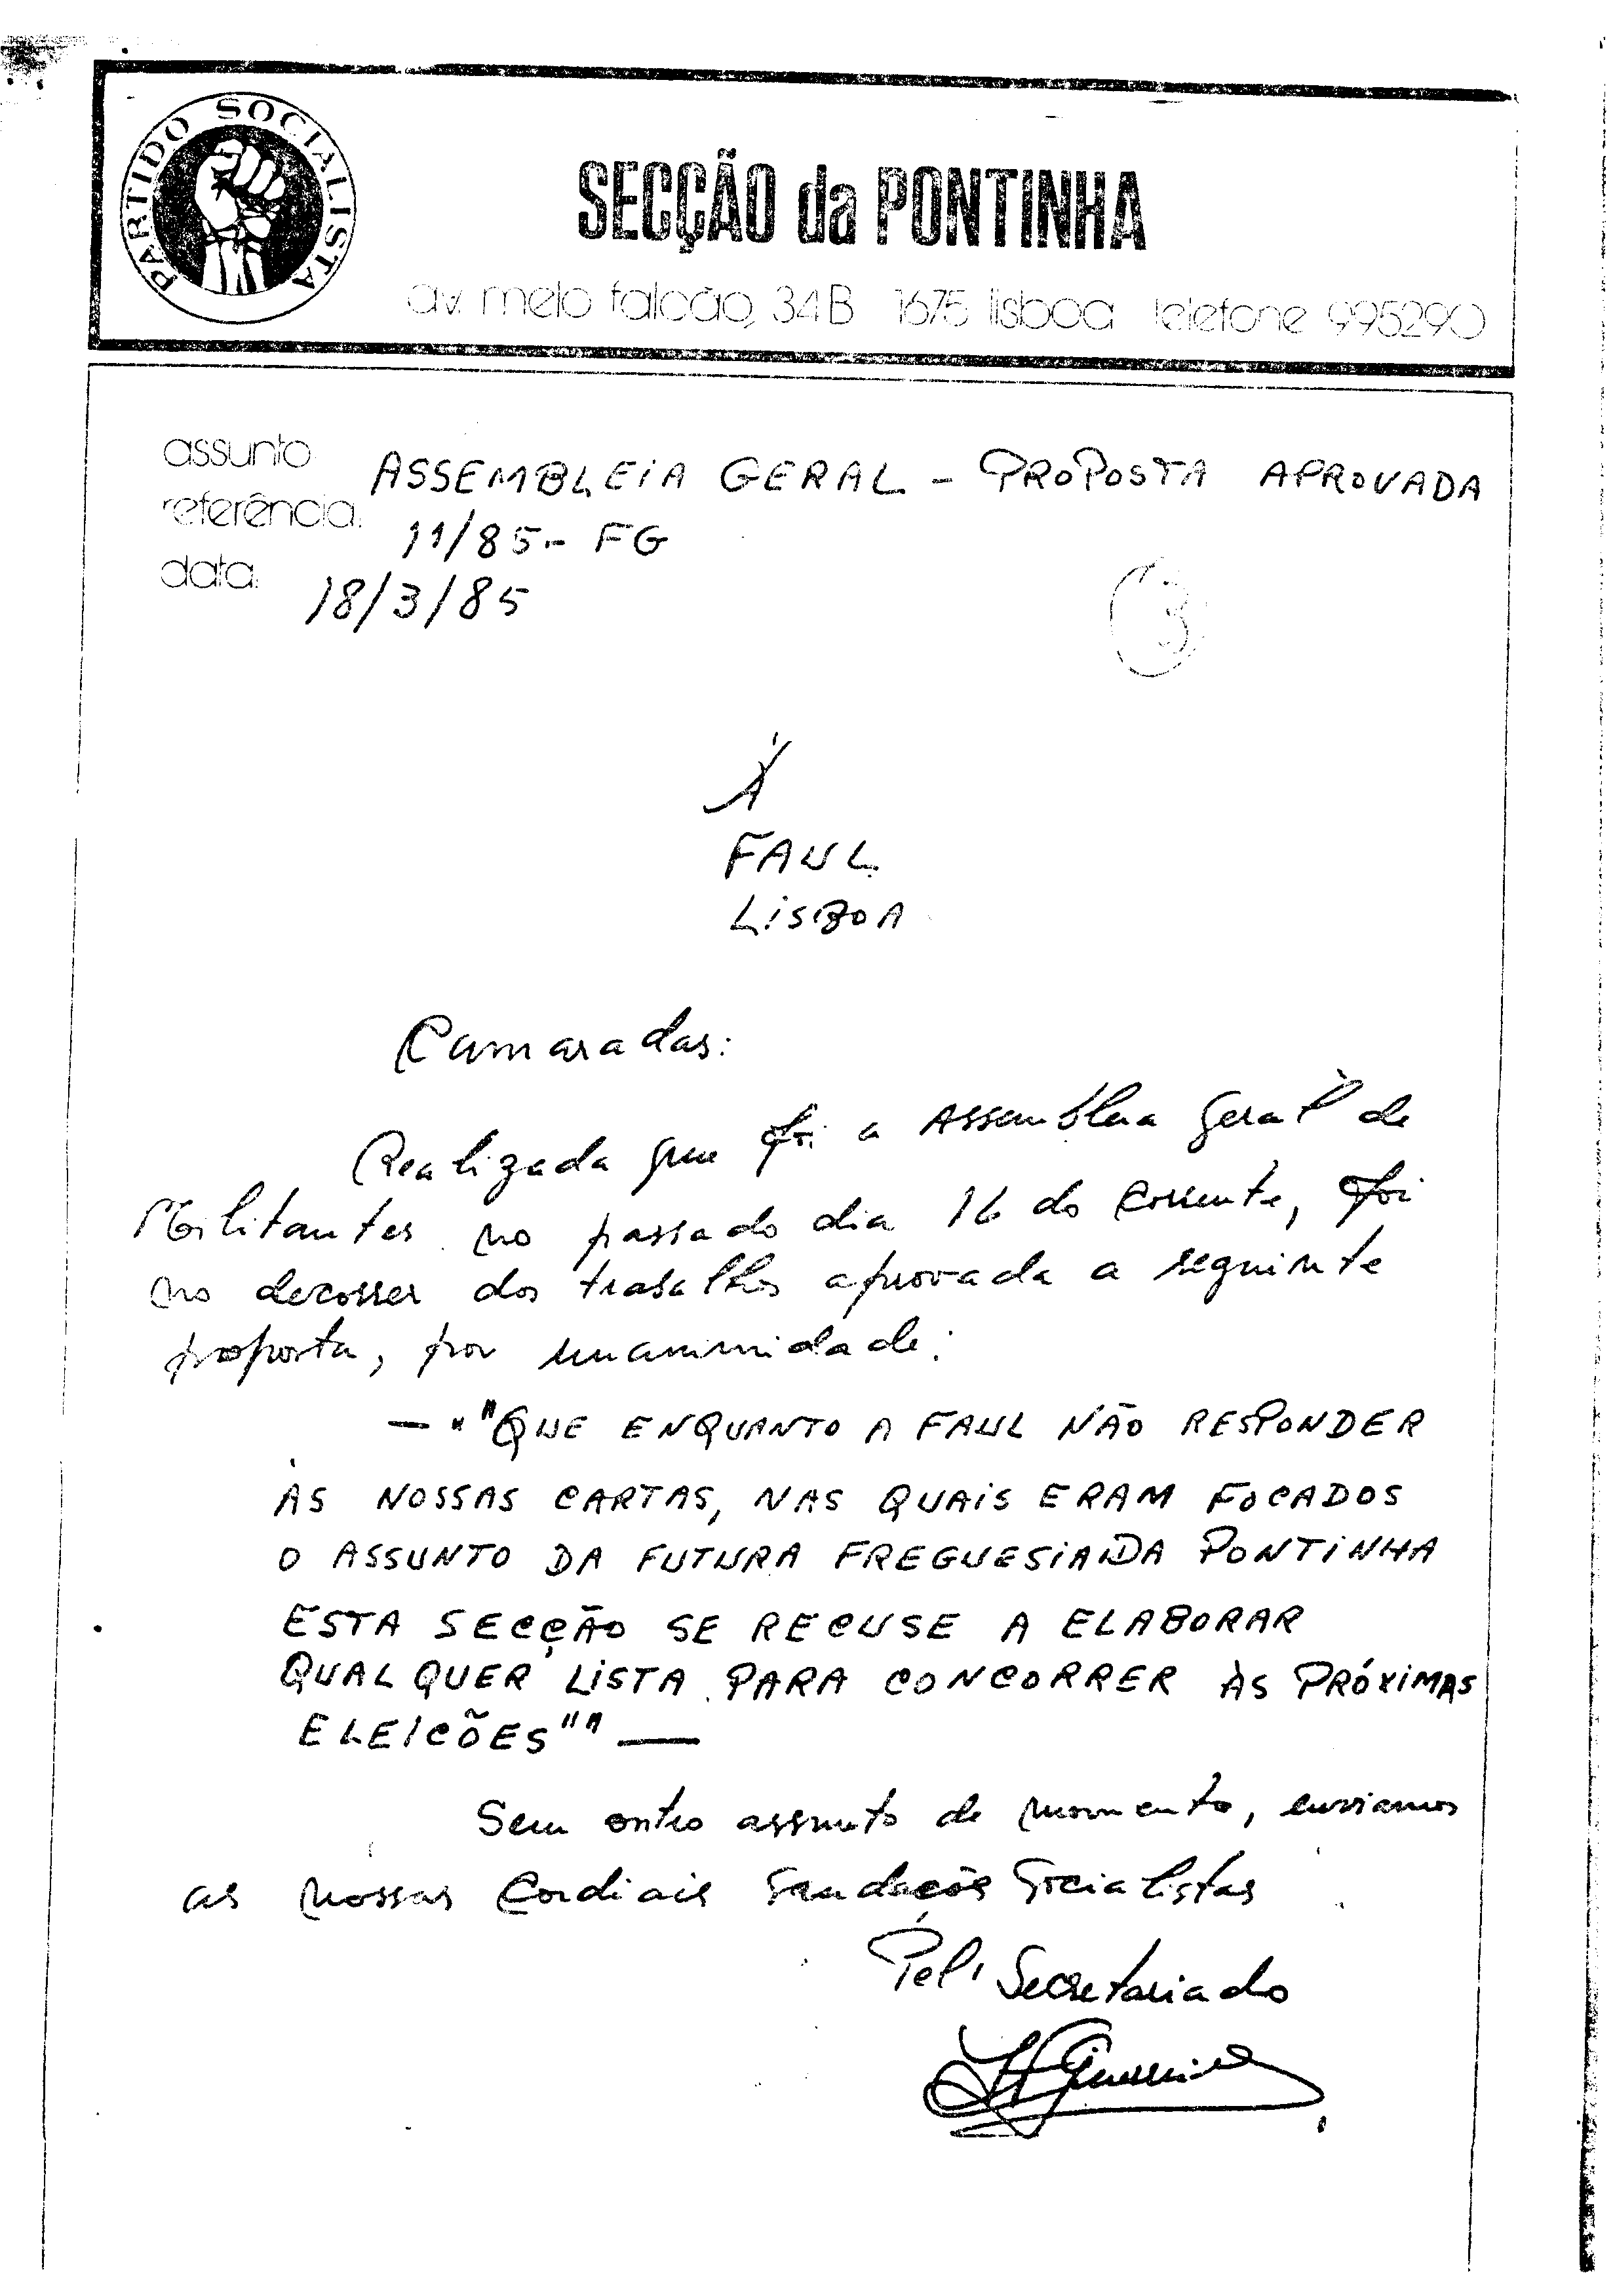 PARTIDO SOCIALISTA
SECÇÃO da PONTINHA
av. melo falcão, 34B 1675 lisboa telefone 995290
assunto: ASSEMBLEIA GERAL - PROPOSTA APROVADA
referência: 11/85 - FG
data: 18/3/85
3
À
FAUL
LISBOA
Camaradas:
Realizada que foi a Assembleia Geral de
Militantes no passado dia 16 do corrente, foi
no decorrer dos trabalhos aprovada a seguinte
proposta, por unanimidade:
— ""QUE ENQUANTO A FAUL NÃO RESPONDER
ÀS NOSSAS CARTAS, NAS QUAIS ERAM FOCADOS
O ASSUNTO DA FUTURA FREGUESIA DA PONTINHA
ESTA SECÇÃO SE RECUSE A ELABORAR
QUALQUER LISTA PARA CONCORRER ÀS PRÓXIMAS
ELEIÇÕES"" —
Sem outro assunto de momento, enviamos
as nossas Cordiais Saudações Socialistas
Pel' Secretariado